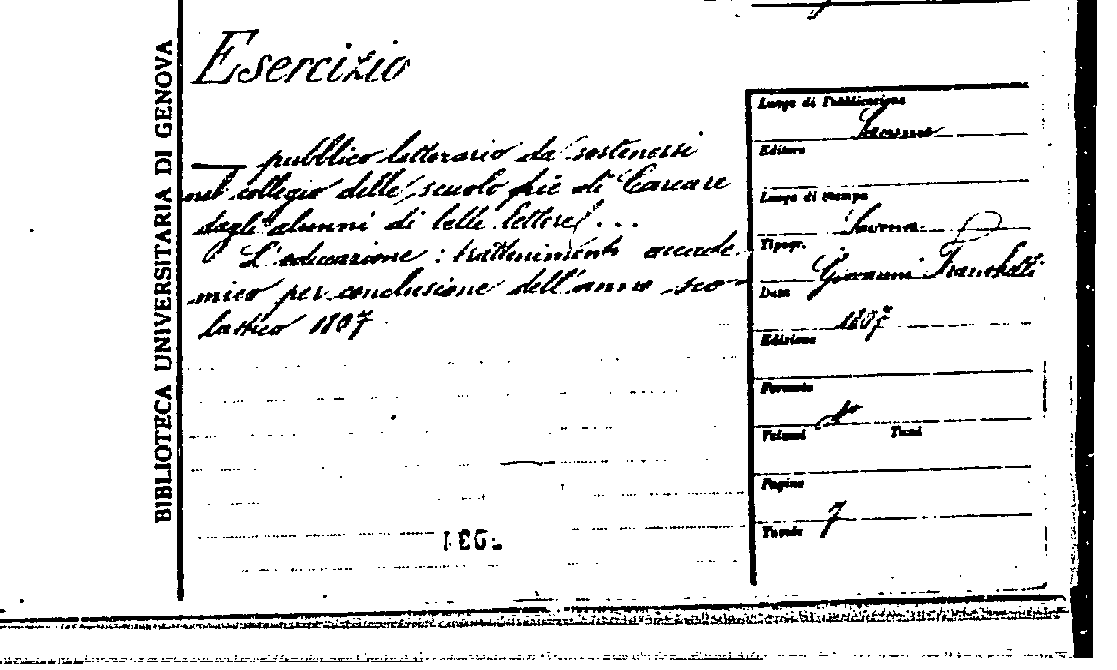 BIBLIOTECA UNIVERSITARIA DI GENOVA
Esercizio
pubblico letterario da sostenersi
nel collegio delle scuole pie di Carcare
dagli alunni di belle lettere ...
L'educazione : trattenimento accade-
mico per conclusione dell'anno sco-
lastico 1807
Luogo di Pubblicazione
Editore
Luogo di stampa
Tipogr.
Giovanni
Data
1807
Edizione
Formato
Volumi Tomi
Pagine
Tavole 7